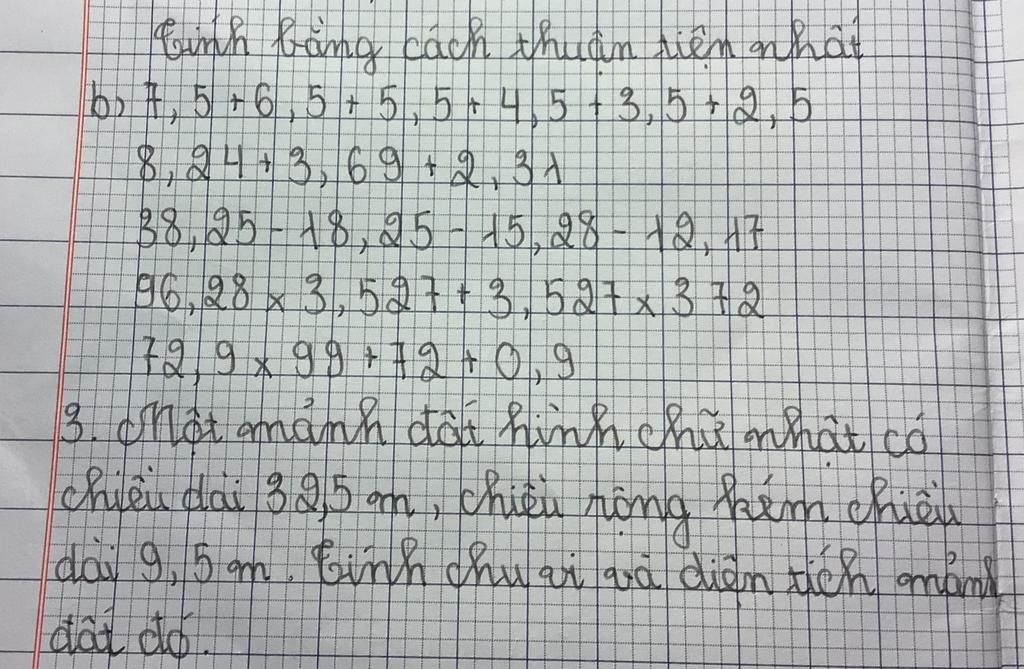 Tính bằng cách thuận tiện nhất
b) 7,5 + 6,5 + 5,5 + 4,5 + 3,5 + 2,5
8,24 + 3,69 + 2,31
38,25 - 18,25 - 15,28 - 12,17
96,28 x 3,527 + 3,527 x 372
72,9 x 99 + 72 + 0,9
3. Một mảnh đất hình chữ nhật có
chiều dài 32,5 m, chiều rộng kém chiều
dài 9,5 m. Tính chu vi và diện tích mảnh
đất đó.